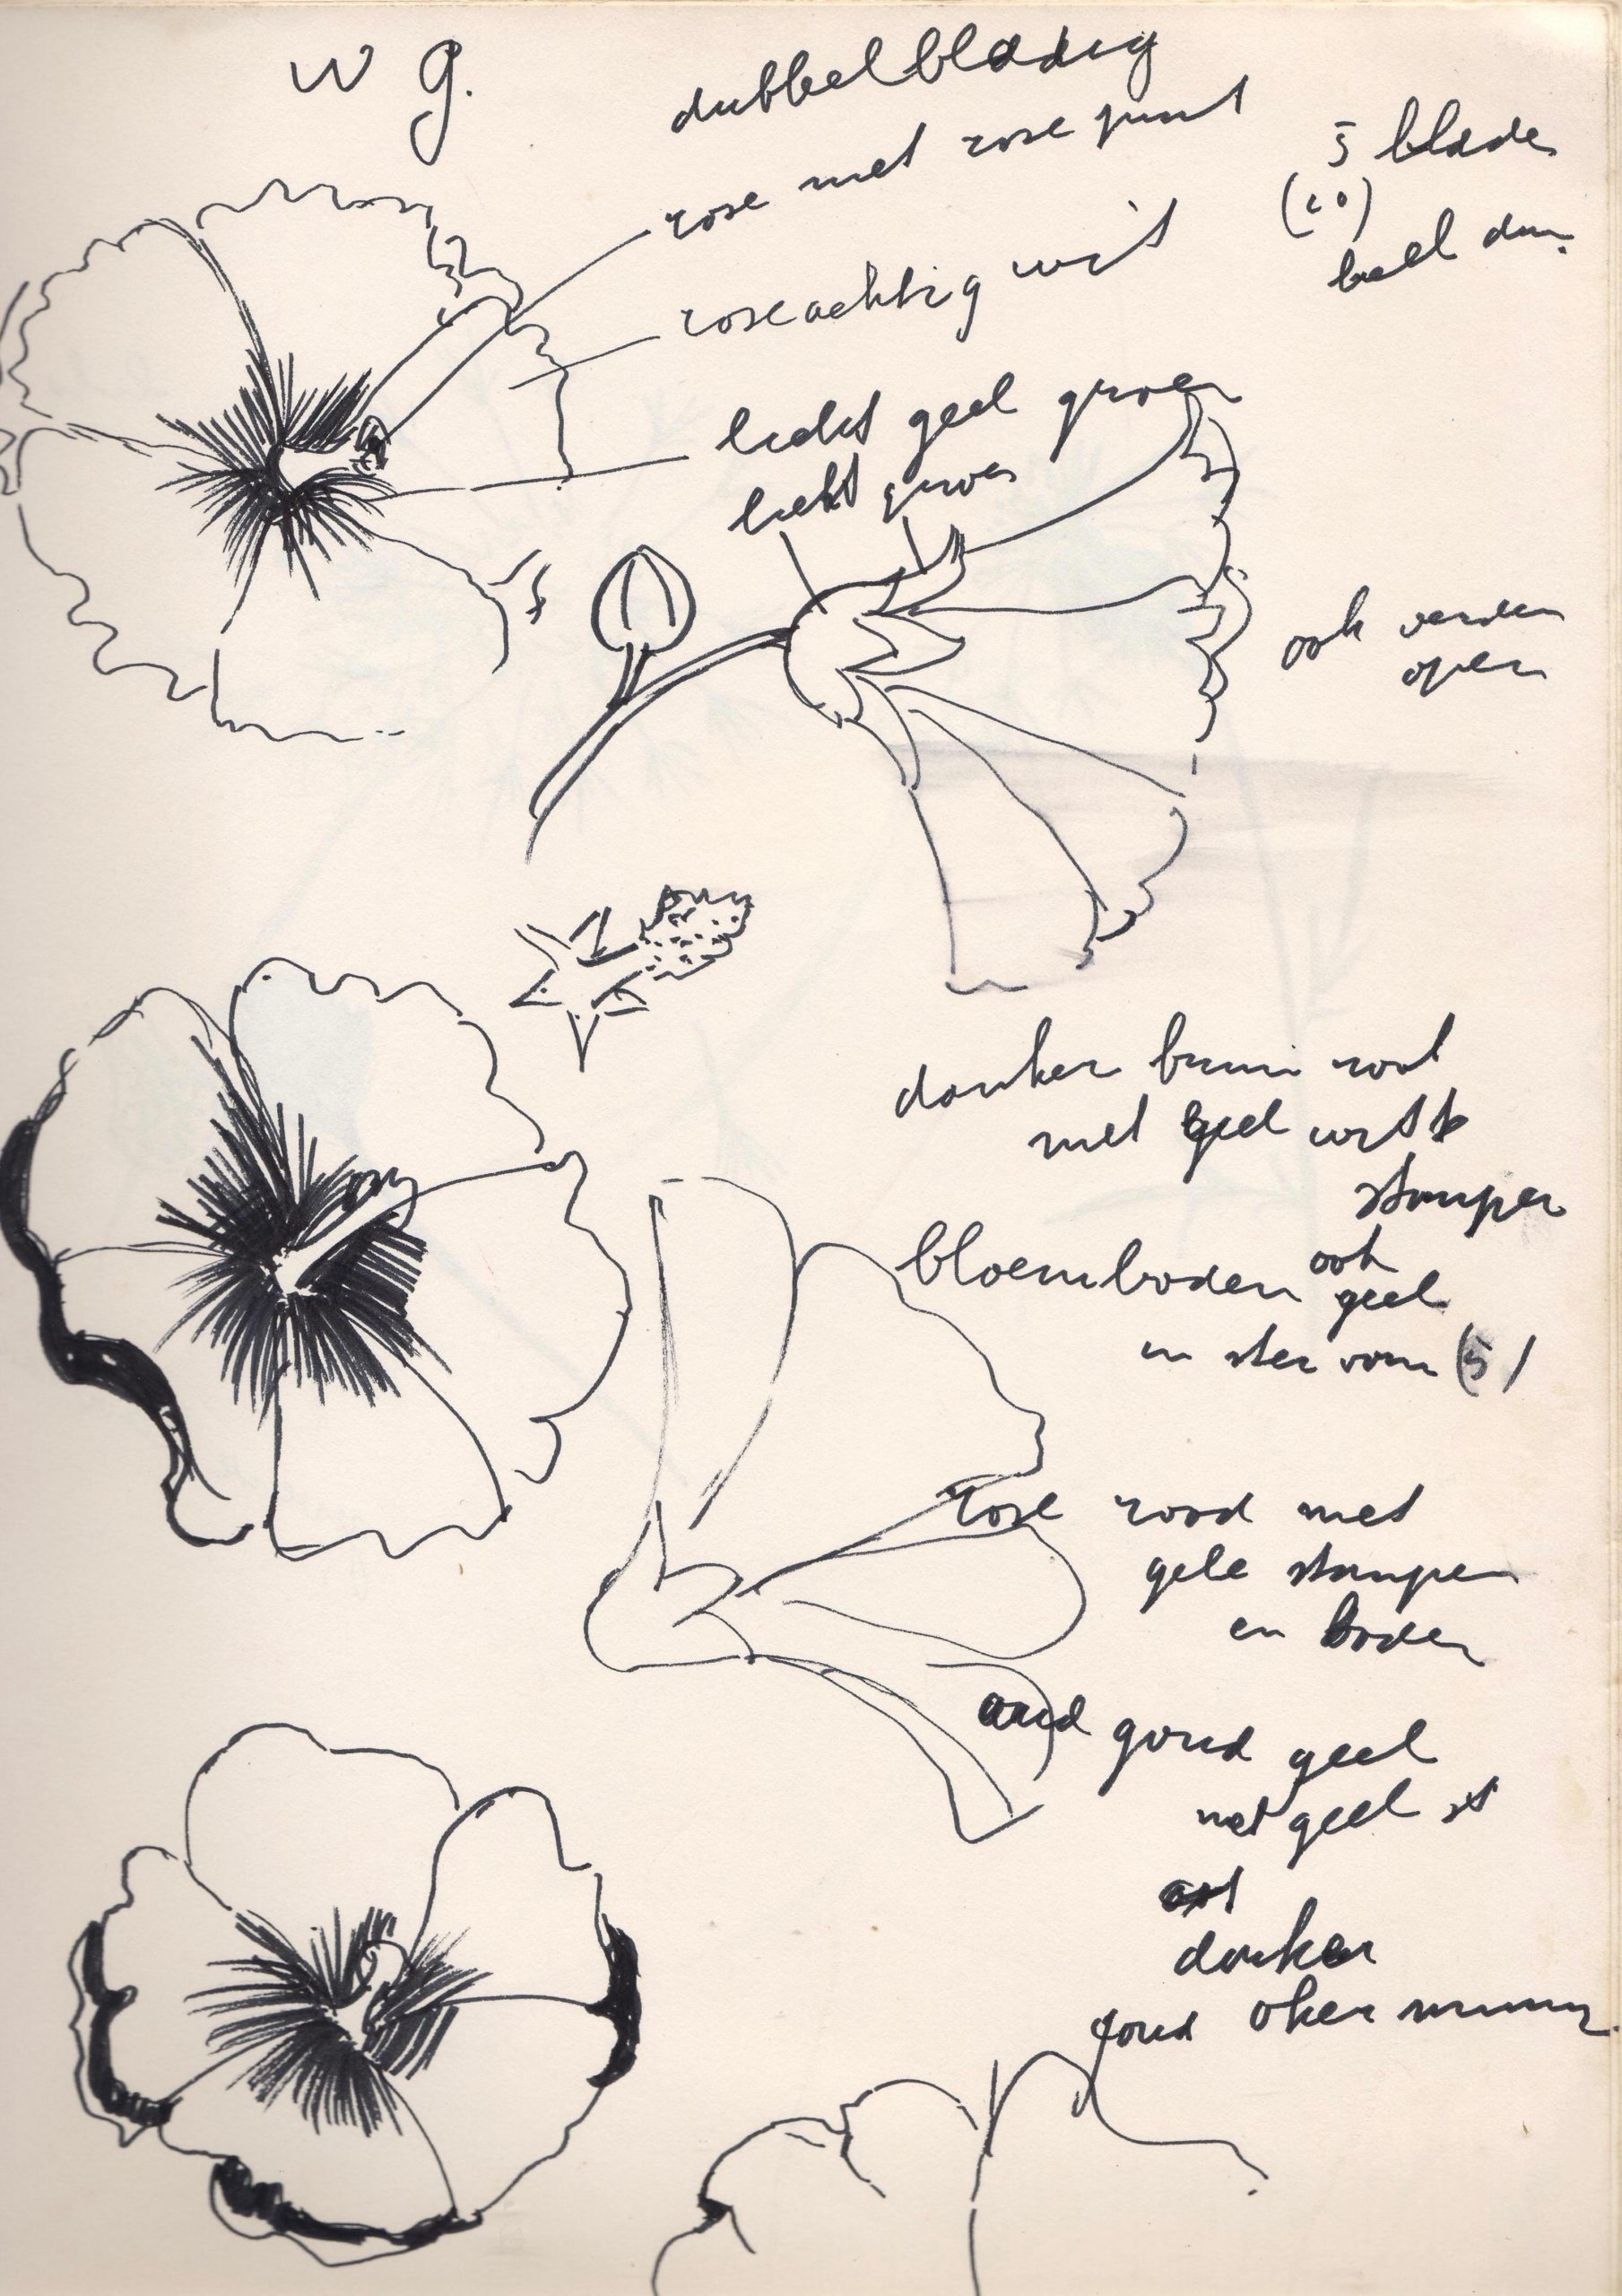 W g.
dubbelbladig
rose met rose punt
5 blade
(10)
heel dun.
roseachtig wit
licht geel groen
licht groen
ook verder
open
donker bruin rood
met geel witte
stamper
bloembodem ook
geel
in ster vorm (5)
rose rood met
gele stamper
en bodem
oud goud geel
met geel st
donker
goud oker